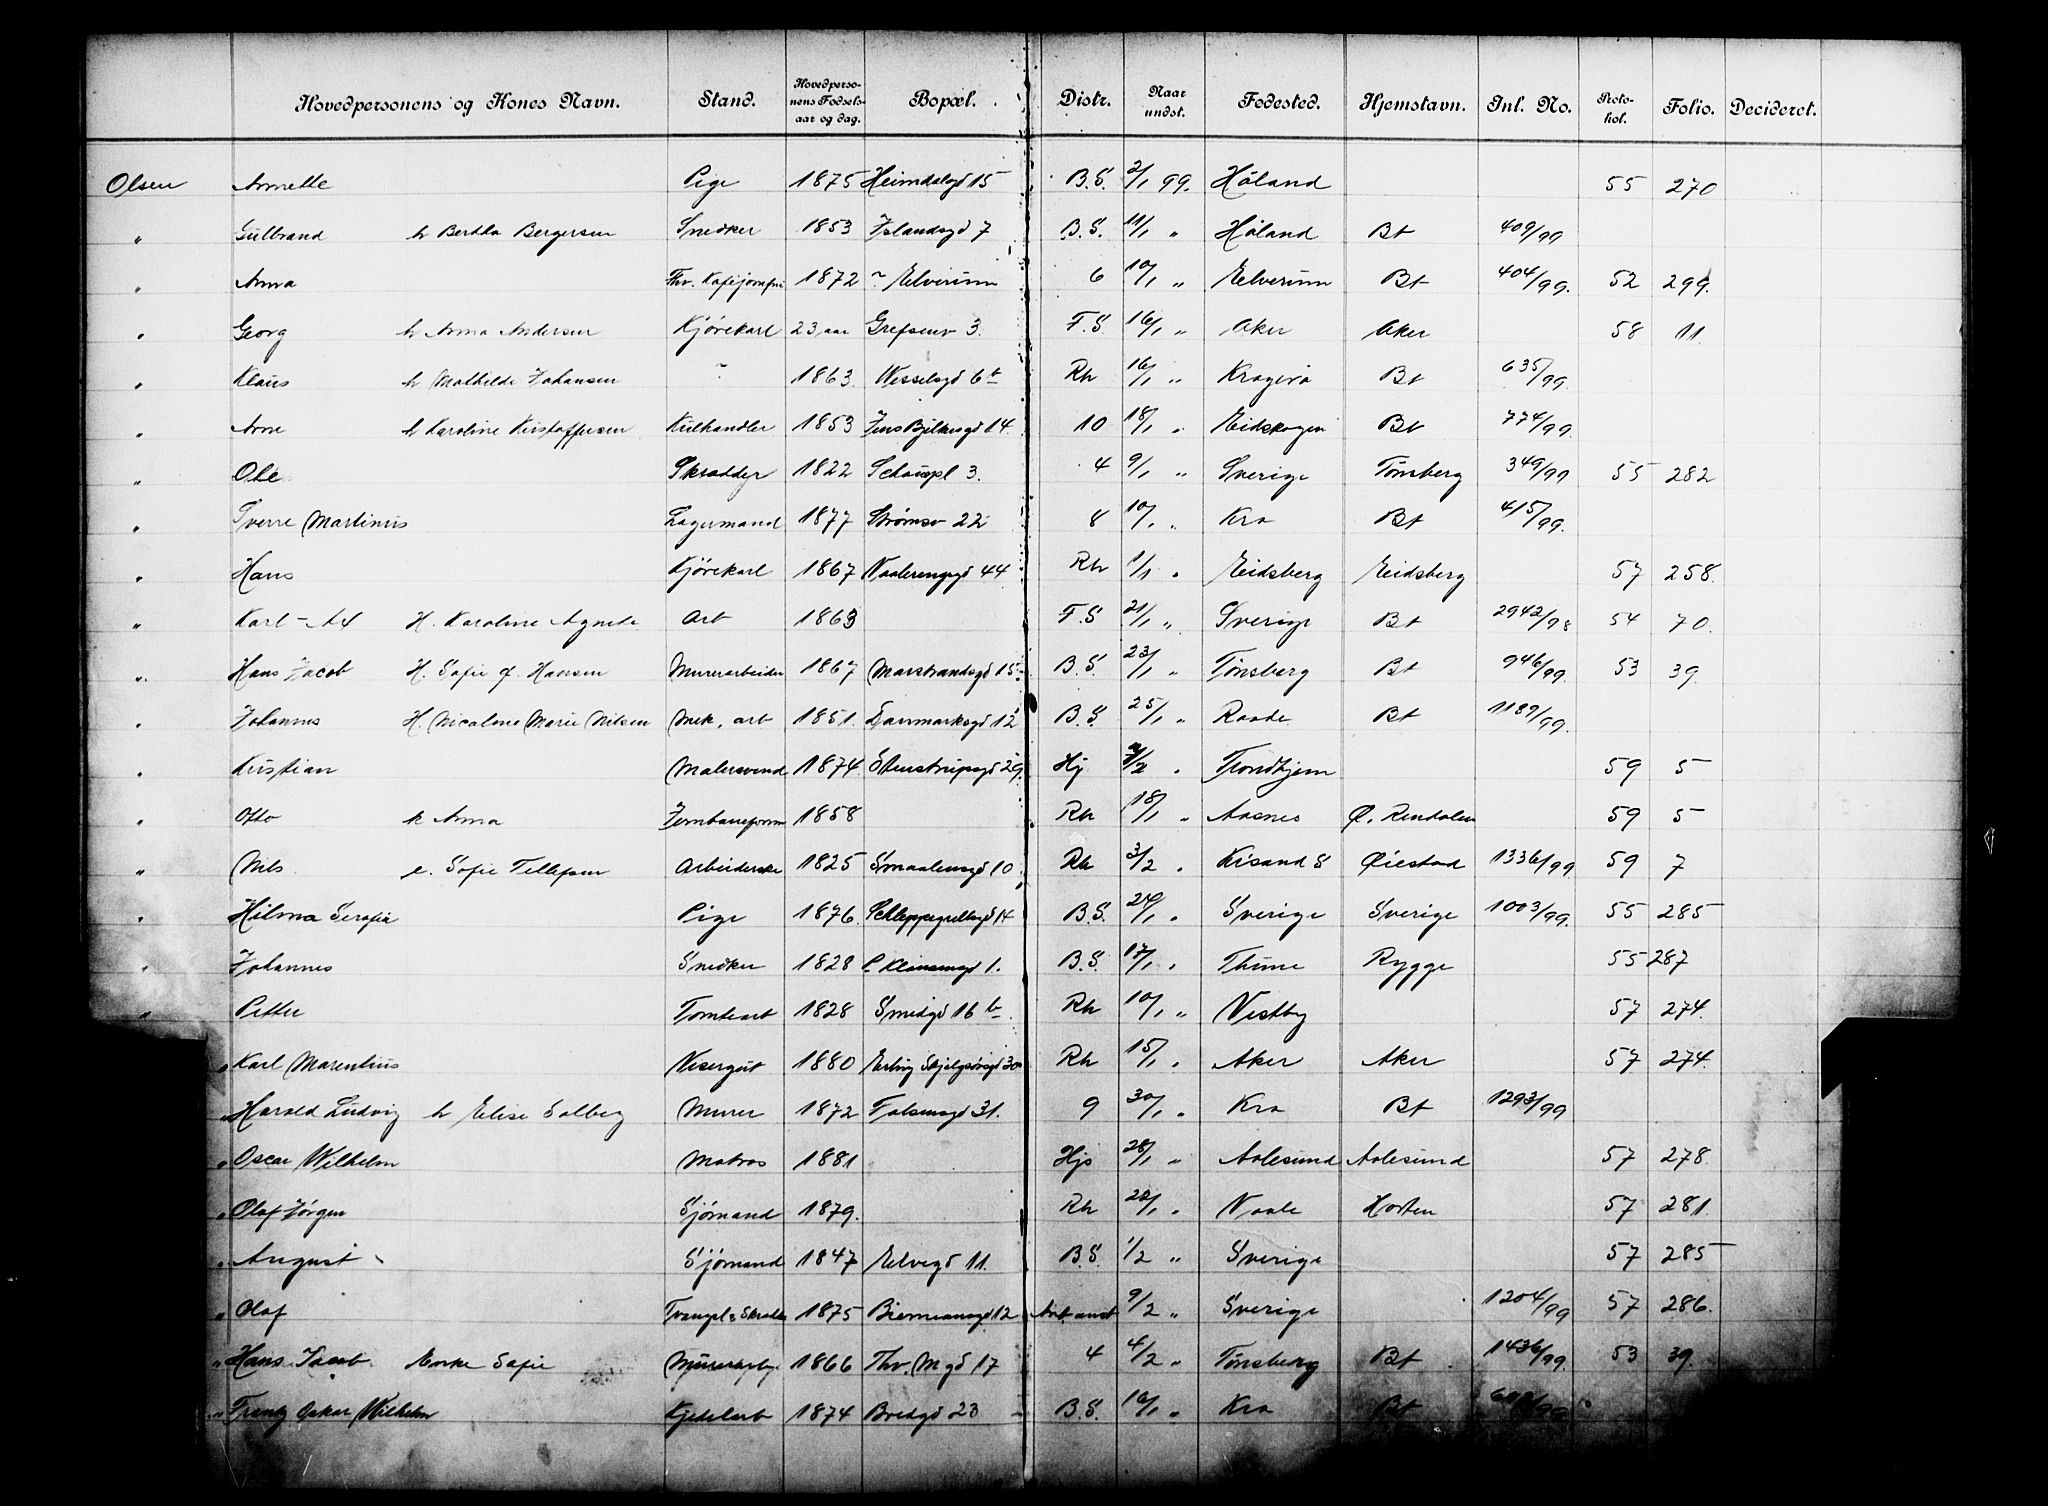 Hovedpersonens og Kones Navn. Stand. Hovedpersonens Fødselsaar og dag. Bopæl. Distr. Naar undst. Fødested. Hjemstavn. Inl. No. Protokol. Folio. Decideret.
Olsen Annette Pige 1875 Heimdalsgd 15 B.S. 2/1 99. Höland 55 270
" Gulbrand h Bertha Bergersen Snedker 1853 Islandsgd 7 B.S. 11/1 " Höland Bt 409/99
" Anna Thv. 1872 Elverum 6 10/1 " Elverum Bt 404/99. 52 299.
" Georg h Anna Andersen Kjörekarl 23 aar Grefsenv 3. F.S. 16/1 " Aker Aker 58 11.
" Klaus h Mathilde Johansen " 1863 Wesselsgd 6b Rh 16/1 " Kragerø Bt 635/99.
" Arne h Karoline Kristoffersen Kulhandler 1853 Jens Bjelkesgd 14. 10 18/1 " Eidskogen Bt 774/99.
" Ole Skrædder 1822 Schouspl 3. 4 9/1 " Sverige Tönsberg 349/99 55 282
" Sverre Martinius Lagermand 1877 Strømsv 22 8 10/1 " Kra Bt 415/99.
" Hans Kjörekarl 1867 Vaalerengsgd 44 Rh 1/1 " Eidsberg Eidsberg 57 258.
" Karl - H. Karoline Agneta Arb 1863 F.S 21/1 " Sverige Bt 2942/98 54 70.
" Hans Jacob H. Sofie f. Hansen Murerarbeider 1867 Marstrandsgd 15 B.S. 23/1 " Tønsberg Bt 946/99. 53 39.
" Johannes H. Nicoline Marie Nilsen Mek. arb 1851. Danmarksgd 12 B.S. 25/1 " Raade Bt 1189/99.
" Kristian Malersvend 1874 Stenstrupsgd 29. Hj /2 " Trondhjem 59 5
" Otto h Anna 1858 Rh 18/1 " Aasnes Ø. Rendalen 59 5
" Nils e. Sofie Tellefsen Arbeiderske 1825 Smaalensgd 10 Rh 3/2 " Krsand S Øiestad 1336/99 59 7
" Hilma Serafia Pige 1876. Schleppegrellsgd 14 B.S. /1 " Sverige Sverige 1003/99. 55 285
" Johannes Snedker 1828 1. B.S. 17/1 " Thune Rygge 55 287
" Petter Tomtearb 1828 Smedgd 16 b Rh 10/1 " Vestby 57 274.
" Karl Marentius Visergut 1880 Erling Skjalgsönsgd 30 Rh 15/1 " Aker Aker 57 274.
" Harald Ludvig h Elise Solberg Murer 1872 Tøiensgd 31. 9 30/1 " Kra Bt 1293/99
" Oscar Wilhelm Matros 1881 Hjs 28/1 " Aalesund Aalesund 57 278.
" Olaf Jörgen Sjømand 1879. Rh 22/1 " Vaale Horten 57 281.
" August Sjømand 1847 Elvegd 11. B.S. 1/2 " Sverige 57 285
" Olaf 1875 12 Arb anst 9/2 " Sverige 1204/99 57 286.
" Hans Jacob Enke Sofie Murerarb 1866 Thv. Mgd 17 4 4/2 " Tönsberg Bt 1436/99. 53 39
" Frantz Oskar Wilhelm Kjedelarb 1874 Bredgd 23 B.S. 16/1 " Kra Bt